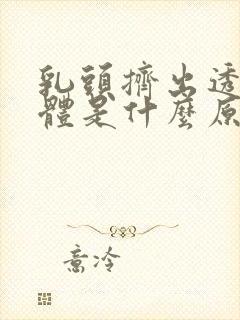 乳頭擠出透
體是什麼原
意冷